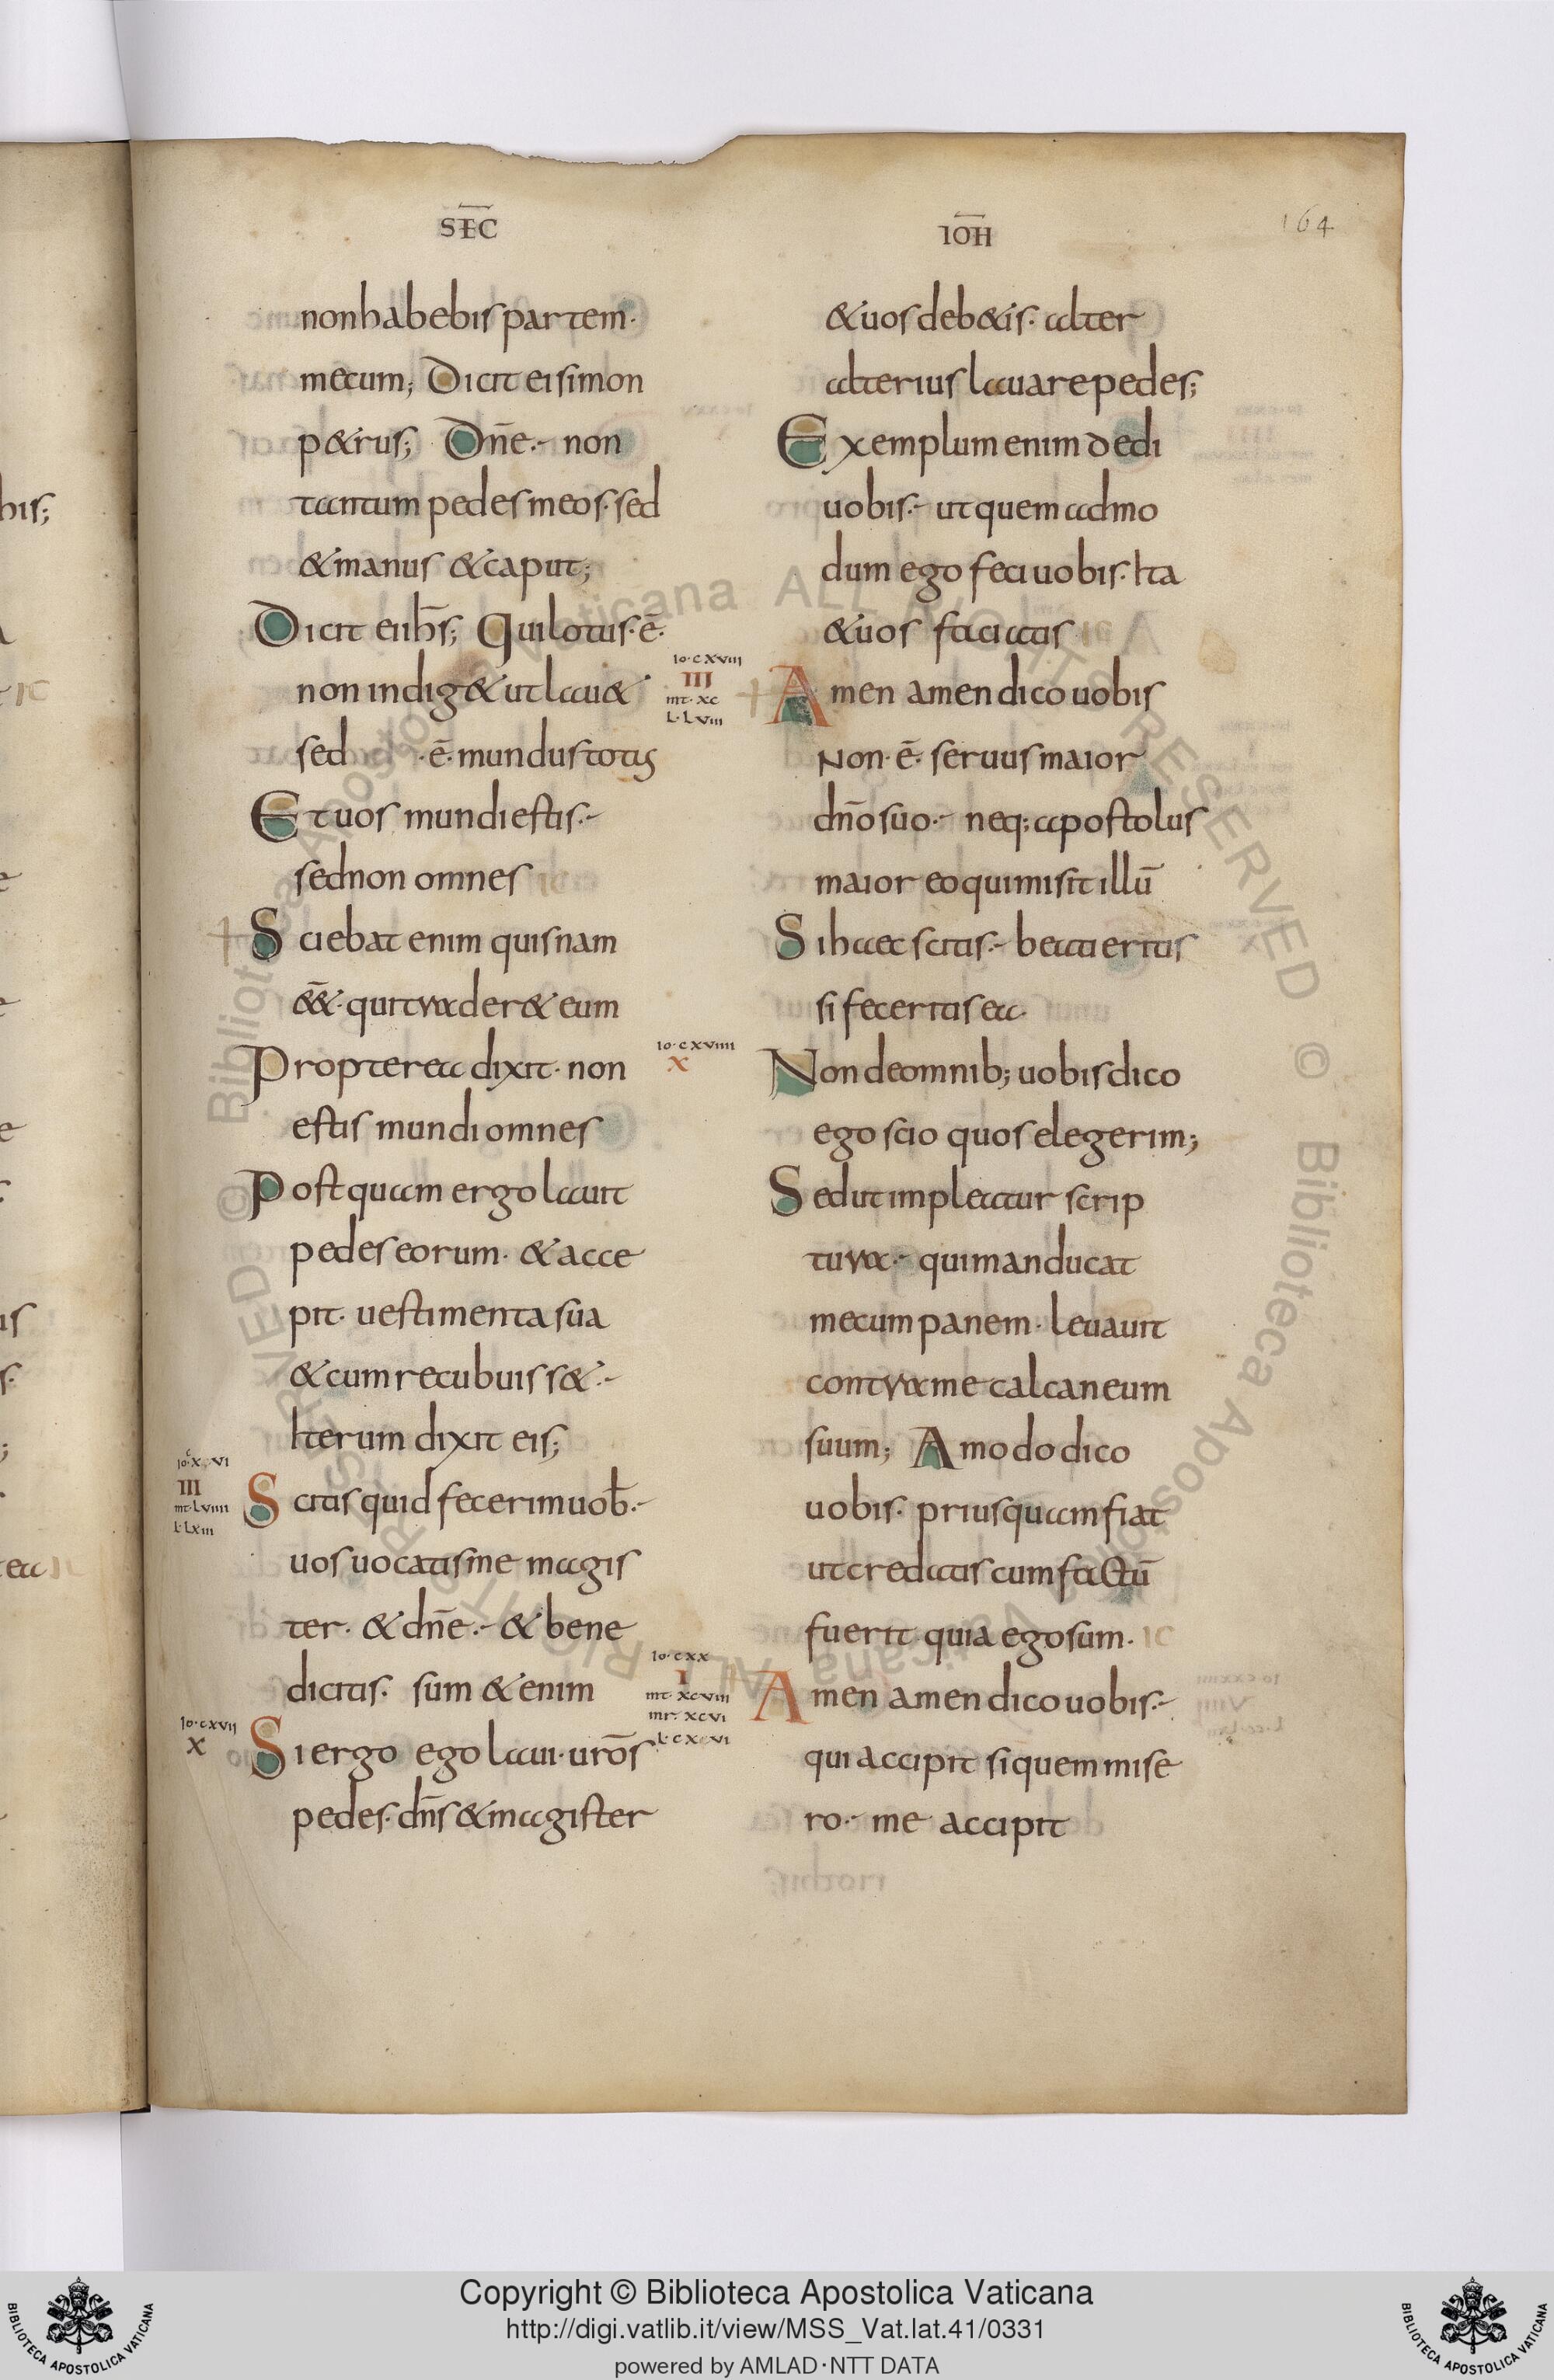 SEC̅
IOH̅
164
non habebis partem·
mecum; Dicit ei simon
p&rus; Dn̄e·- non
tantum pedes meos· sed
& manus & caput;
Dicit ei ih̄s; Qui lotus· ē·
non indig& ut lau&
sed · ē· mundus totus
Et uos mundi estis·-
sed non omnes
Sciebat enim quisnam
ēē· qui trader& eum
Propterea dixit· non
estis mundi omnes
Postquam ergo lauit
pedes eorum· & acce
pit· uestimenta sua
& cum recubuiss&·-
Iterum dixit eis;
Io·cxvi
III
mt·Lviiii
L·Lxiii
Scitis quid fecerim uob̄·-
uos uocatis me magis
ter· & dn̄e·- & bene
dicitis· sum & enim
Io·cxvii
X
Si ergo ego laui· ur̄os
pedes· dn̄s & magister
& uos deb&is· alter
alterius lauare pedes;
Exemplum enim dedi
uobis·- ut quem admo
dum ego feci uobis· Ita
& uos faciatis
Io·cxviii
III
mt·xc
L·Lviii
Amen amen dico uobis
Non· ē· seruus maior
dn̄o suo·- neq; apostolus
maior eo qui misit illū
Si haec scitis·- beati eritis
si feceritis ea·
Io·cxviiii
X
Non de omnib; uobis dico
ego scio quos elegerim;
Sed ut impleatur scrip
tura·- qui manducat
mecum panem· leuauit
contra me calcaneum
suum; Amodo dico
uobis· priusquam fiat
ut credatis cum factū
fuerit quia ego sum·
Io·cxx
I
mt·xcviii
mr·xcvi
L·cxvi
Amen amen dico uobis·-
qui accipit si quem mise
ro·- me accipit
Copyright © Biblioteca Apostolica Vaticana
http://digi.vatlib.it/view/MSS_Vat.lat.41/0331
powered by AMLAD·NTT DATA
BIBLIOTECA APOSTOLICA VATICANA
BIBLIOTECA APOSTOLICA VATICANA